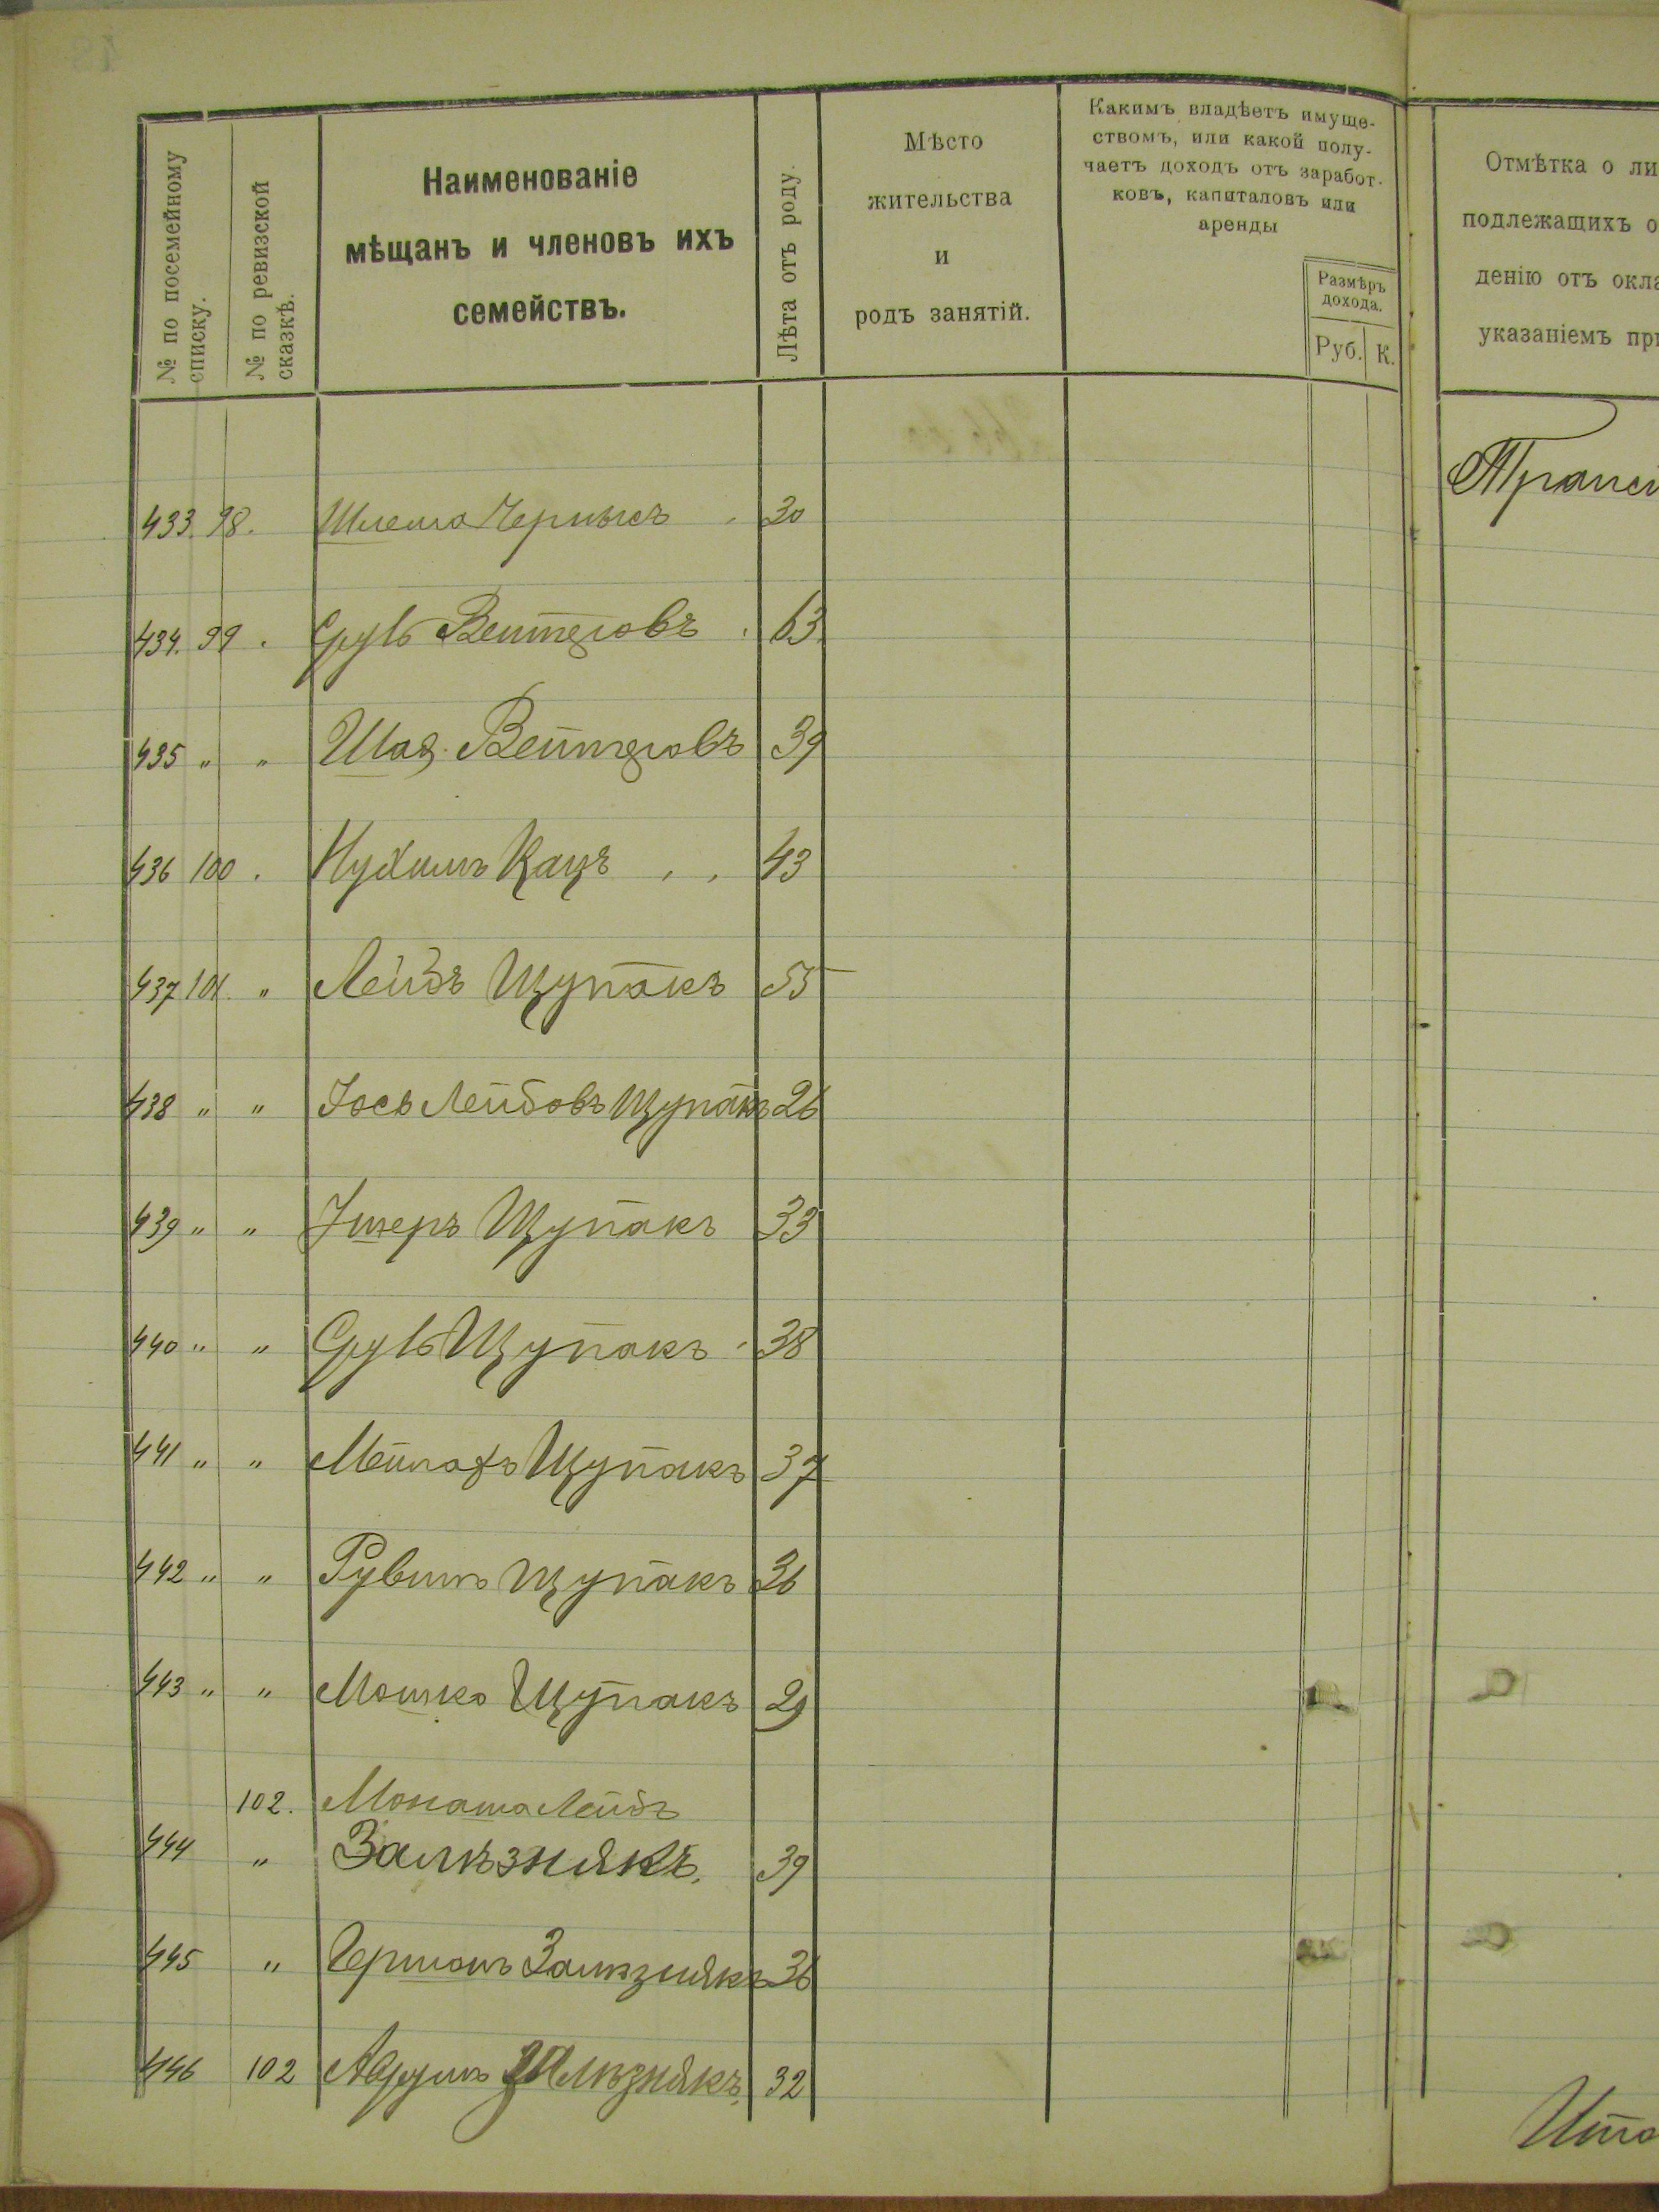 № по посемейному списку.
№ по ревизской сказкѣ.
Наименованіе
мѣщанъ и членовъ ихъ
семействъ.
Лѣта отъ роду.
Мѣсто
жительства
и
родъ занятій.
Какимъ владѣетъ имуще-
ствомъ, или какой полу-
чаетъ доходъ отъ заработ-
ковъ, капиталовъ или
аренды
Размѣръ
дохода.
Руб. К.
Отмѣтка о ли
подлежащихъ о
денію отъ окла
указаніемъ при
433. 98. Шлема Черныхъ 30
434. 99. Сруль Вейтеловъ 63
435 " " Шая Вейтеловъ 39
436 100. Нухимъ Кацъ 43
437 101. " Лейбъ Щупакъ 55
438 " " Іось Лейбовъ Щупакъ 26
439 " " Ушеръ Щупакъ 33
440 " " Сруль Щупакъ 38
441 " " Мейлахъ Щупакъ 37
442 " " Рувинъ Щупакъ 36
443 " " Мошко Щупакъ 29
102. Монаша Лейбъ
444 " Залѣзнякъ. 39
445 " Гершонъ Залѣзнякъ 36
446 102 Аврумъ Залѣзнякъ. 32